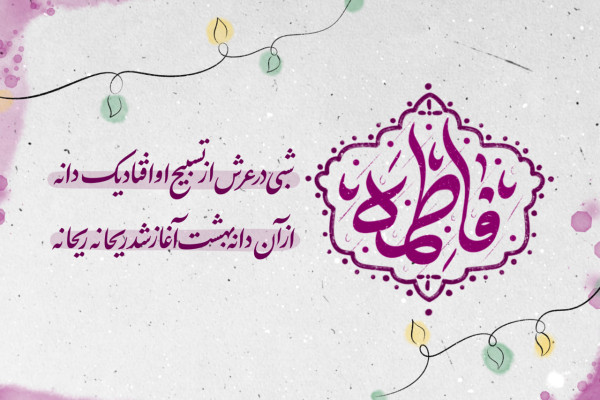 فاطمه
شبی در عرش از تسبیح او افتاد یک دانه
از آن دانه بهشت آغاز شد ریحانه ریحانه